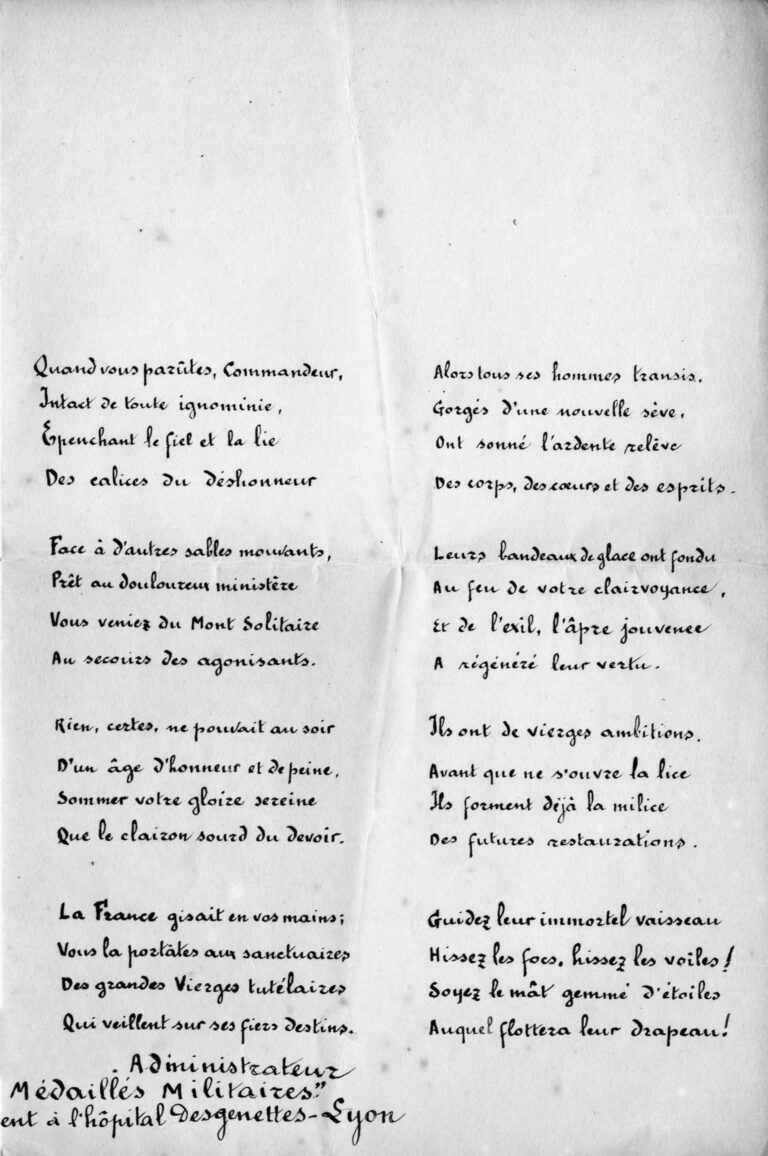 Quand vous parûtes, Commandeur,
Intact de toute ignominie,
Épenchant le fiel et la lie
Des calices du déshonneur
Face à d'autres sables mouvants,
Prêt au douloureux ministère
Vous veniez du Mont Solitaire
Au secours des agonisants.
Rien, certes, ne pouvait au soir
D'un âge d'honneur et de peine,
Sommer votre gloire sereine
Que le clairon sourd du devoir.
La France gisait en vos mains;
Vous la portâtes aux sanctuaires
Des grandes Vierges tutélaires
Qui veillent sur ses fiers destins.
Alors tous ses hommes transis,
Gorgés d'une nouvelle sève,
Ont sonné l'ardente relève
Des corps, des cœurs et des esprits.
Leurs bandeaux de glace ont fondu
Au feu de votre clairvoyance,
Et de l'exil, l'âpre jouvence
A régénéré leur vertu.
Ils ont de vierges ambitions,
Avant que ne s'ouvre la lice
Ils forment déjà la milice
Des futures restaurations.
Guidez leur immortel vaisseau
Hissez les focs, hissez les voiles!
Soyez le mât gemmé d'étoiles
Auquel flottera leur drapeau!
. Administrateur
Médaillés Militaires."
ent à l'hôpital Desgenettes-Lyon